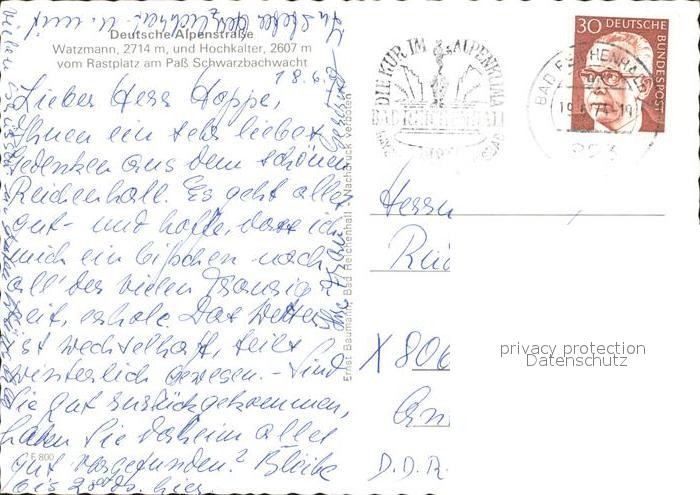 Deutsche Alpenstraße
Watzmann, 2714 m, und Hochkalter, 2607 m
vom Rastplatz am Paß Schwarzbachwacht
18.6.
Lieber Herr Hoppe,
Ihnen ein sehr liebes
Gedenken aus dem schönen
Reichenhall. Es geht alles
gut - und hoffe, dass ich
mich ein bißchen nach
all' der vielen Traurig-
keit, erhole. Das Wetter
ist wechselhaft, teils
winterlich gewesen. - Sind
Sie gut zurückgekommen,
haben Sie daheim alles
gut vorgefunden? Bleibe
bis hier.
E 800
Ernst Baumann, Bad Reichenhall Nachdruck verboten
DIE KUR IM ALPENKLIMA
BAD REICHENHALL
30 DEUTSCHE
BUNDESPOST
Herrn
X 806
D.D.R.
privacy protection
Datenschutz